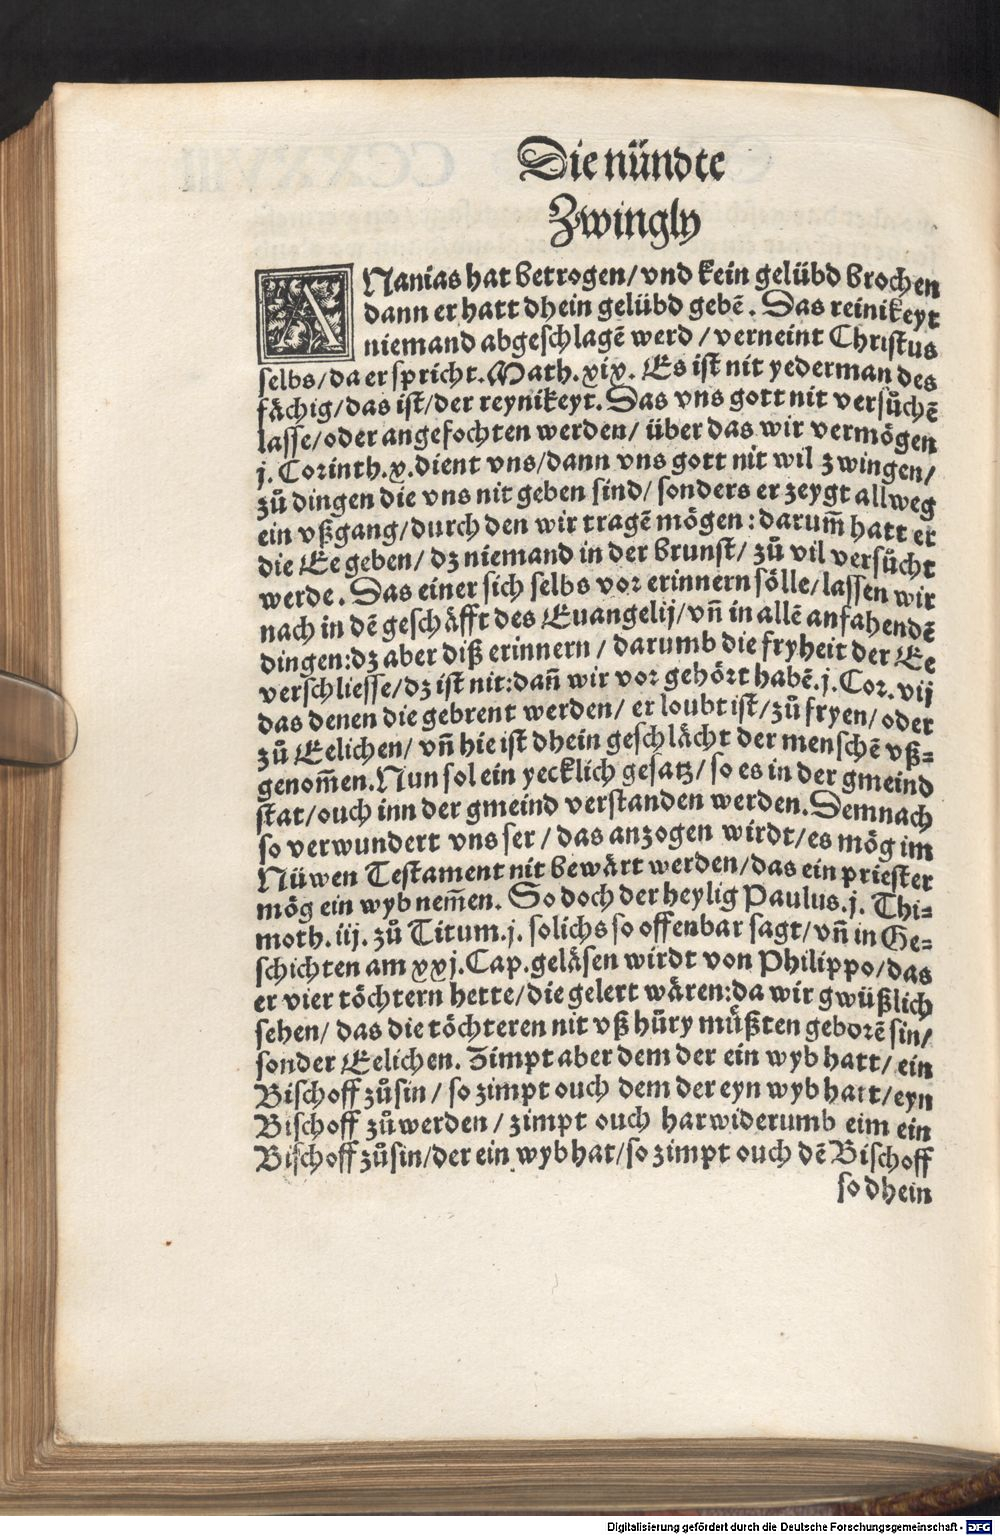 Die nündte
Zwingly
ANanias hat betrogen/ vnd kein gelübd brochen
dann er hatt dhein gelübd gebē. Das reinikeyt
niemand abgeschlagē werd / verneint Christus
selbs/ da er spricht. Math. xix. Es ist nit yederman des
fächig/ das ist/ der reynikeyt. Das vns gott nit versůchē
lasse/ oder angefochten werden/ über das wir vermögen
j. Corinth. x. dient vns/ dann vns gott nit wil zwingen/
zů dingen die vns nit geben sind/ sonders er zeygt allweg
ein vßgang/ durch den wir tragē mögen: darum̄ hatt er
die Ee geben/ dz niemand in der brunst/ zů vil versůcht
werde. Das einer sich selbs vor erinnern sölle/ lassen wir
nach in dē geschäfft des Euangelij/ vn̄ in allē anfahendē
dingen: dz aber diß erinnern / darumb die fryheit der Ee
verschliesse/ dz ist nit: dan̄ wir vor gehört habē. j. Cor. vij
das denen die gebrent werden/ erloubt ist/ zů fryen/ oder
zů Eelichen/ vn̄ hie ist dhein geschlächt der menschē vß-
genom̄en. Nun sol ein yecklich gesatz/ so es in der gmeind
stat/ ouch inn der gmeind verstanden werden. Demnach
so verwundert vns ser / das anzogen wirdt/ es mög im
Nüwen Testament nit bewärt werden/ das ein priester
mög ein wyb nem̄en. So doch der heylig Paulus. j. Thi-
moth. iij. zů Titum. j. solichs so offenbar sagt/ vn̄ in Ge-
schichten am xxj. Cap. geläsen wirdt von Philippo/ das
er vier töchtern hette/ die gelert wären: da wir gwüßlich
sehen/ das die töchteren nit vß hůry můßten geborē sin/
sonder Eelichen. Zimpt aber dem der ein wyb hatt/ ein
Bischoff zůsin / so zimpt ouch dem der eyn wyb hatt/ eyn
Bischoff zůwerden / zimpt ouch harwiderumb eim ein
Bischoff zůsin/ der ein wyb hat/ so zimpt ouch dē Bischoff
so dhein
Digitalisierung gefördert durch die Deutsche Forschungsgemeinschaft - DFG